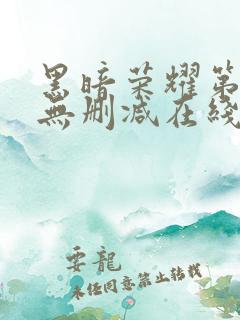 黑暗荣耀第
無删减在綫
要龍
未经同意禁止转载